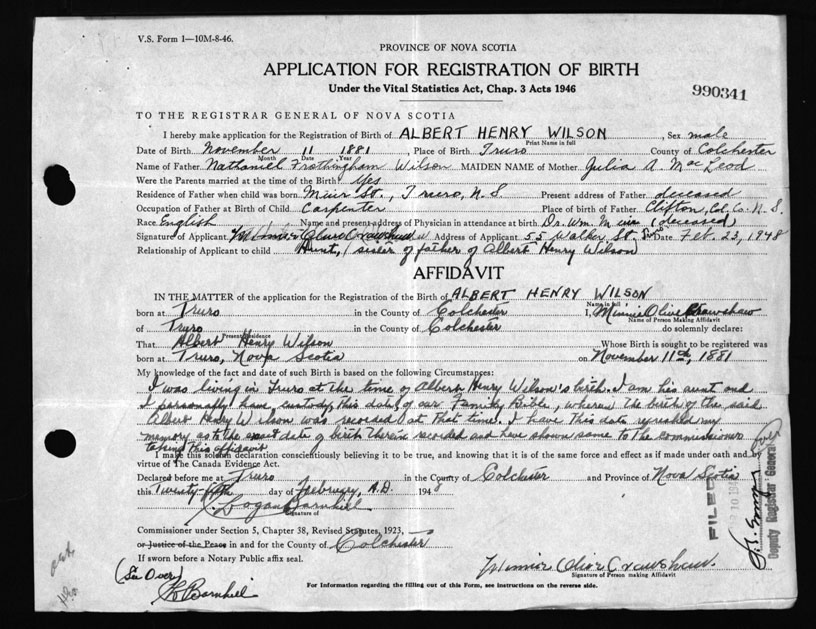 V.S. Form 1—10M-8-46.
PROVINCE OF NOVA SCOTIA
APPLICATION FOR REGISTRATION OF BIRTH
Under the Vital Statistics Act, Chap. 3 Acts 1946
990341
TO THE REGISTRAR GENERAL OF NOVA SCOTIA
I hereby make application for the Registration of Birth of ALBERT HENRY WILSON, Sex male
Print Name in full
Date of Birth November 11 1881, Place of Birth Truro County of Colchester
Month Date Year
Name of Father Nathaniel Frothingham Wilson MAIDEN NAME of Mother Julia A. MacLeod
Were the Parents married at the time of the Birth Yes
Residence of Father when child was born Muir St., Truro, N.S Present address of Father deceased
Occupation of Father at Birth of Child Carpenter Place of birth of Father Clifton, Col. Co. N.S.
Race English Name and present address of Physician in attendance at birth Dr. Wm. Muir (deceased)
Signature of Applicant Minnie Olive Crawshaw Address of Applicant 55 Walker St. Truro Date Feb. 23, 1948
Relationship of Applicant to child Aunt, sister of father of Albert Henry Wilson
AFFIDAVIT
IN THE MATTER of the application for the Registration of the Birth of ALBERT HENRY WILSON
Name in full
born at Truro in the County of Colchester I, Minnie Olive Crawshaw
Name of Person Making Affidavit
of Truro in the County of Colchester do solemnly declare:
Present Residence
That Albert Henry Wilson Whose Birth is sought to be registered was
born at Truro, Nova Scotia on November 11th, 1881
My knowledge of the fact and date of such Birth is based on the following Circumstances:
I was living in Truro at the time of Albert Henry Wilson's birth. I am his aunt and
I personally have custody this date of our Family Bible, wherein the birth of the said
Albert Henry Wilson was recorded at that time. I have this date refreshed my
memory as to the exact date of birth therein recorded and have shown same to the Commissioner
taking this affidavit
I make this solemn declaration conscientiously believing it to be true, and knowing that it is of the same force and effect as if made under oath and by
virtue of The Canada Evidence Act.
Declared before me at Truro in the County of Colchester and Province of Nova Scotia
this Twenty-fifth day of February, A.D. 1948
C. Logan Barnhill
Signature of
Commissioner under Section 5, Chapter 38, Revised Statutes, 1923,
or Justice of the Peace in and for the County of Colchester
If sworn before a Notary Public affix seal.
(See Over)
Barnhill
Minnie Olive Crawshaw
Signature of Person making Affidavit
For Information regarding the filling out of this Form, see instructions on the reverse side.
FILED
Deputy Registrar General